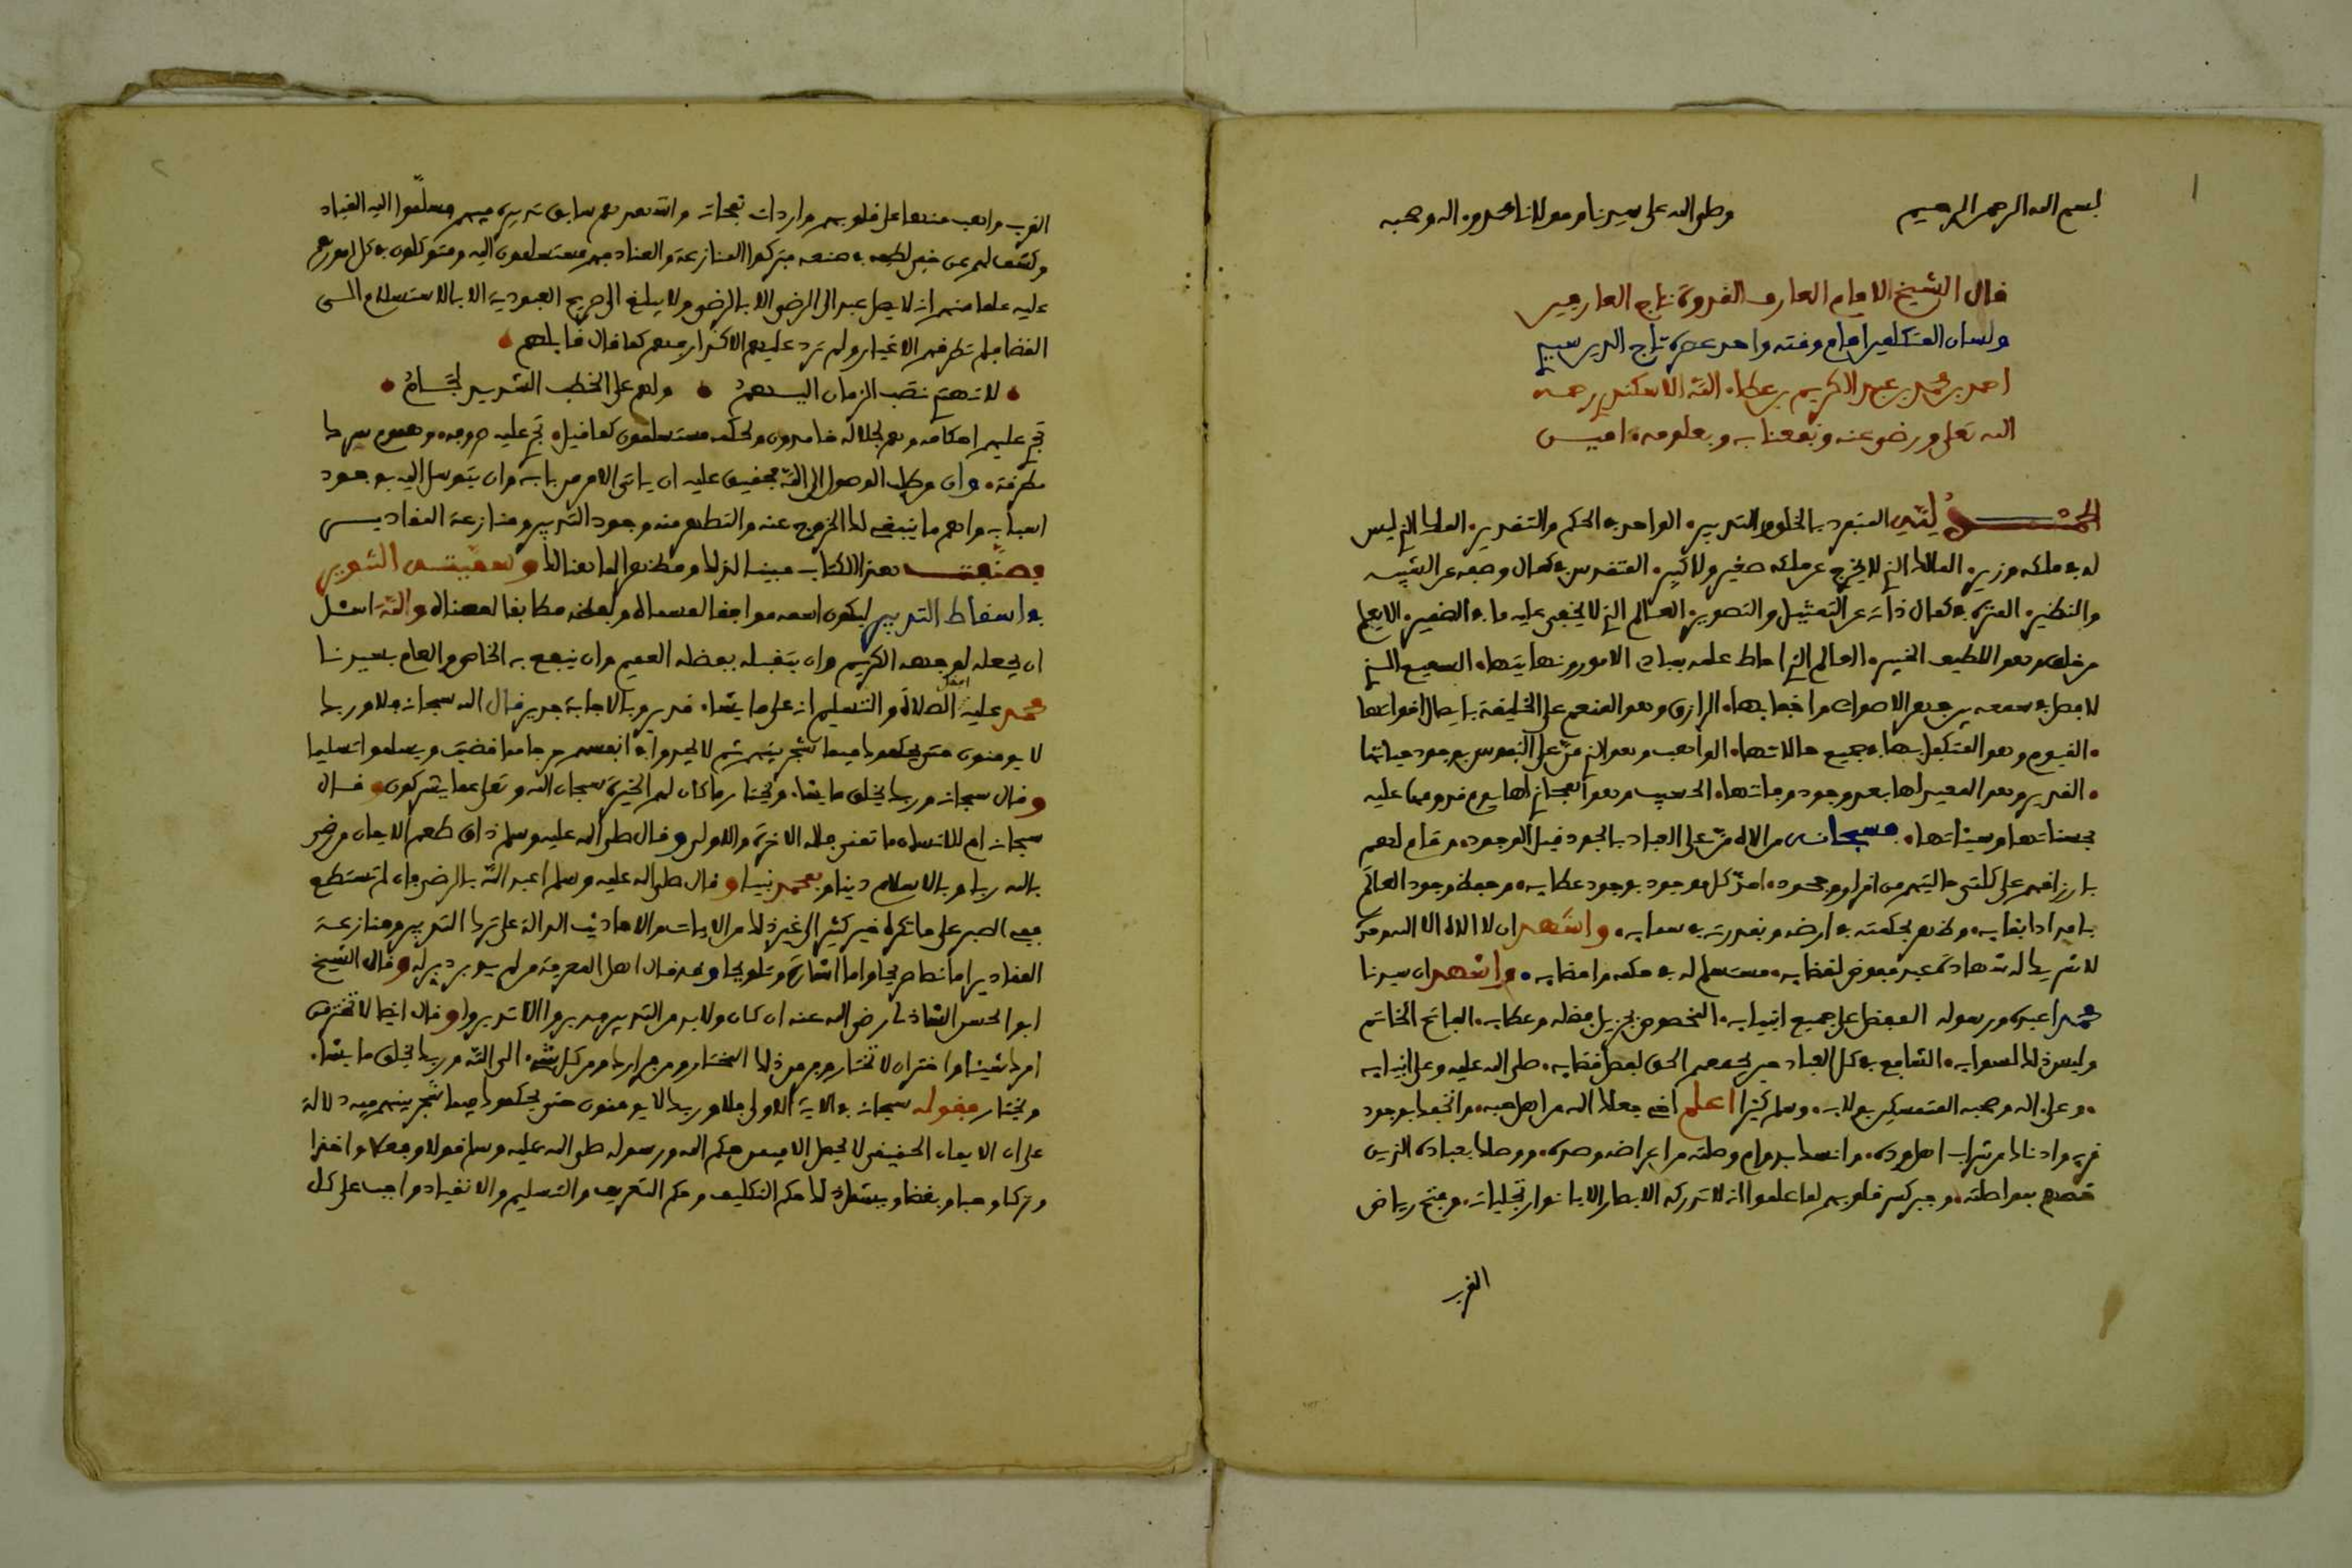 ١
بسم الله الرحمن الرحيم وصلى الله على سيدنا ومولانا محمد وءاله وصحبه
قال الشيخ الامام العارف القدوة تاج العارفين
ولسان المتكلمين امام وقته واحد عصره تاج الدين سيدي
احمد بن محمد بن عبد الكريم بن عطاء الله الاسكندري رحمه
الله تعلى ورضي عنه ونفعنا به وبعلومه ءاميـن
الحمـــد لله المنفرد بالخلق والتدبير، الواحد في الحكم والتقدير، الملك الذي ليس
له في ملكه وزير، المالك الذي لا يخرج عن ملكه صغير ولا كبير، المتقدس في كمال وصفه عن الشبيه
والنظير، المنزه في كمال ذاته عن التمثيل والتصوير، العالم الذي لا يخفى عليه ما في الضمير، الا يعلم
من خلق وهو اللطيف الخبير، العالم الذي احاط علمه بمبادي الامور ونهايتها، السميع الذي
لا فصل في سمعه بين جهر الاصوات واخفاتها، الرازق وهو المنعم على الخليقة بايصال اقواتها
، القيوم وهو المتكفل بها في جميع حالاتها، الواهب وهو الذي منّ على النفوس بوجود حياتها
، القدير وهو المعيد لها بعد وجود وفاتها، الحسيب وهو المجازي لها يوم قدومها عليه
بحسناتها وسيئاتها، فسبحانه من الاه منّ على العباد بالجود قبل الوجود، وقام لهم
بارزاقهم على كلتي حالتيهم من اقرار وجحود، امدّ كل موجود بوجود عطايه، وحفظ وجود العالم
بامداد ابقايه، وظهر بحكمته في ارضه وبقدرته في سمايه، واشهد ان لا الاه الا الله وحده
لا شريك له شهادة عبد مفوض لقضايه، مستسلم له في حكمه وامضايه، واشهد ان سيدنا
محمدا عبده ورسوله المفضل على جميع انبيايه، المخصوص بجزيل فضله وعطايه، الفاتح الخاتم
وليس ذلك لسوايه، الشافع في كل العباد حين يجمعهم الحق لفصل قضايه، صلى الله عليه وعلى انبيايه
، وعلى اله وصحبه المتمسكين بولايه، وسلم كثيرا اعلم اخي جعلك الله من اهل حبه، واتحفك بوجود
قربه واذاقك من شراب اهل وده، وامنك بدوام وصلته من اعراضه وصده، ووصلك بعباده الذين
خصهم بمواصلته، وجبر كسر قلوبهم لما علموا انه لا تدركه الابصار الا بانوار تجلياته، وفتح رياض
القرب
٢
القرب واهب منها على قلوبهم واردات نفحاته واشهدهم سابق تدبيره فيهم فسلّموا اليه القياد
وكشف لهم عن خفي لطفه في صنعه فتركوا المنازعة والعناد فهم مستسلمون اليه ومتوكلون في كل امورهم
عليه علما منهم انه لا يصل عبد الى الرضى الا بالرضى ولا يبلغ الى صريح العبودية الا بالاستسلام الى
القضا فلم تطرقهم الاغيار ولم ترد عليهم الاكدار فهم كما قال قايلهم
لا تهتدي نوب الزمان اليهمُ ولهم على الخطب الشديد لجامُ
تجري عليهم احكامه وهم لجلاله خامدون ولحكمه مستسلمون كما قيل تجري عليه صروفه وهموم سرك
مطرقة، وان من طلب الوصول الى الله فحقيق عليه ان ياتي الامر من بابه وان يتوسل اليه بوجود
اسبابه واهم ما ينبغي لك الخروج عنه والتطهر منه وجود التدبير ومنازعة المقاديـر
فصنّفت هذا الكتاب مبينا لذلك ومظهرا لما هنالك وسميته التنوير
في اسقاط التدبير ليكون اسمه موافقا لمسماه ولفظه مطابقا لمعناه والله اسئل
ان يجعله لوجهه الكريم وان يتقبله بفضله العميم وان ينفع به الخاص والعام بسيدنا
محمد عليه افضل الصلاة والتسليم انه على ما يشاء قدير وبالاجابة جدير قال الله سبحانه فلا وربك
لا يومنون حتى يحكموك فيما شجر بينهم ثم لا يجدوا في انفسهم حرجا مما قضيت ويسلموا تسليما
وقال سبحانه وربك يخلق ما يشاء ويختار ما كان لهم الخيرة سبحان الله وتعلى عما يشركون وقال
سبحانه ام للانسان ما تمنى فلله الاخرة والاولى وقال صلى الله عليه وسلم ذاق طعم الايمان من رضي
بالله ربا وبالاسلام دينا وبمحمد نبيا وقال صلى الله عليه وسلم اعبد الله بالرضى فان لم تستطع
ففي الصبر على ما تكره خير كثير الى غير ذلك من الايات والاحاديث الدالة على ترك التدبير ومنازعة
المقادير اما نصا صريحا واما اشارة وتلويحا وقد قال اهل المعرفة من لم يدبر دبر له وقال الشيخ
ابو الحسن الشاذلي رضي الله عنه ان كان ولا بد من التدبير فدبروا الا تدبروا وقال ايضا لا تختر من
امرك شيئا واختر ان لا تختار وفر من ذلك المختار ومن فرارك ومن كل شيء الى الله وربك يخلق ما يشاء
ويختار فقوله سبحانه في الاية الاولى فلا وربك لا يومنون حتى يحكموك فيما شجر بينهم فيه دلالة
على ان الايمان الحقيقي لا يحصل الا لمن حكم الله ورسوله صلى الله عليه وسلم قولا وفعلا واخذا
وتركا وحبا وبغضا ويشمل ذلك حكم التكليف وحكم التعريف والتسليم والانقياد واجب على كل